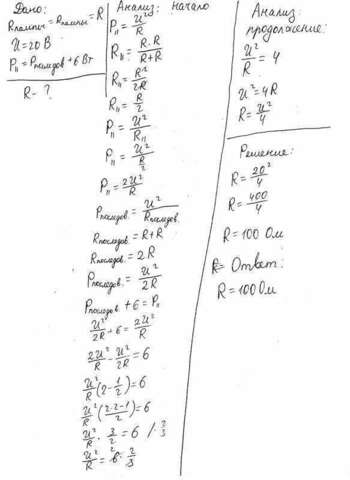 Дано:
Rлампы₁ = Rлампы₂ = R
U = 20 В
P₁₁ = Pпоследов + 6 Вт
R - ?
Анализ: начало
P₁₁ = U²/R
R₁₁ = R·R/R+R
R₁₁ = R²/2R
R₁₁ = R/2
P₁₁ = U²/R₁₁
P₁₁ = U²/(R/2)
P₁₁ = 2U²/R
Pпоследов. = U²/Rпоследов.
Rпоследов. = R+R
Rпоследов. = 2R
Pпоследов. = U²/2R
Pпоследов. + 6 = P₁₁
U²/2R + 6 = 2U²/R
2U²/R - U²/2R = 6
U²/R (2 - 1/2) = 6
U²/R (2·2-1/2) = 6
U²/R · 3/2 = 6 /· 2/3
U²/R = 6 · 2/3
Анализ:
продолжение:
U²/R = 4
U² = 4R
R = U²/4
Решение:
R = 20²/4
R = 400/4
R = 100 Ом
Ответ:
R = 100 Ом